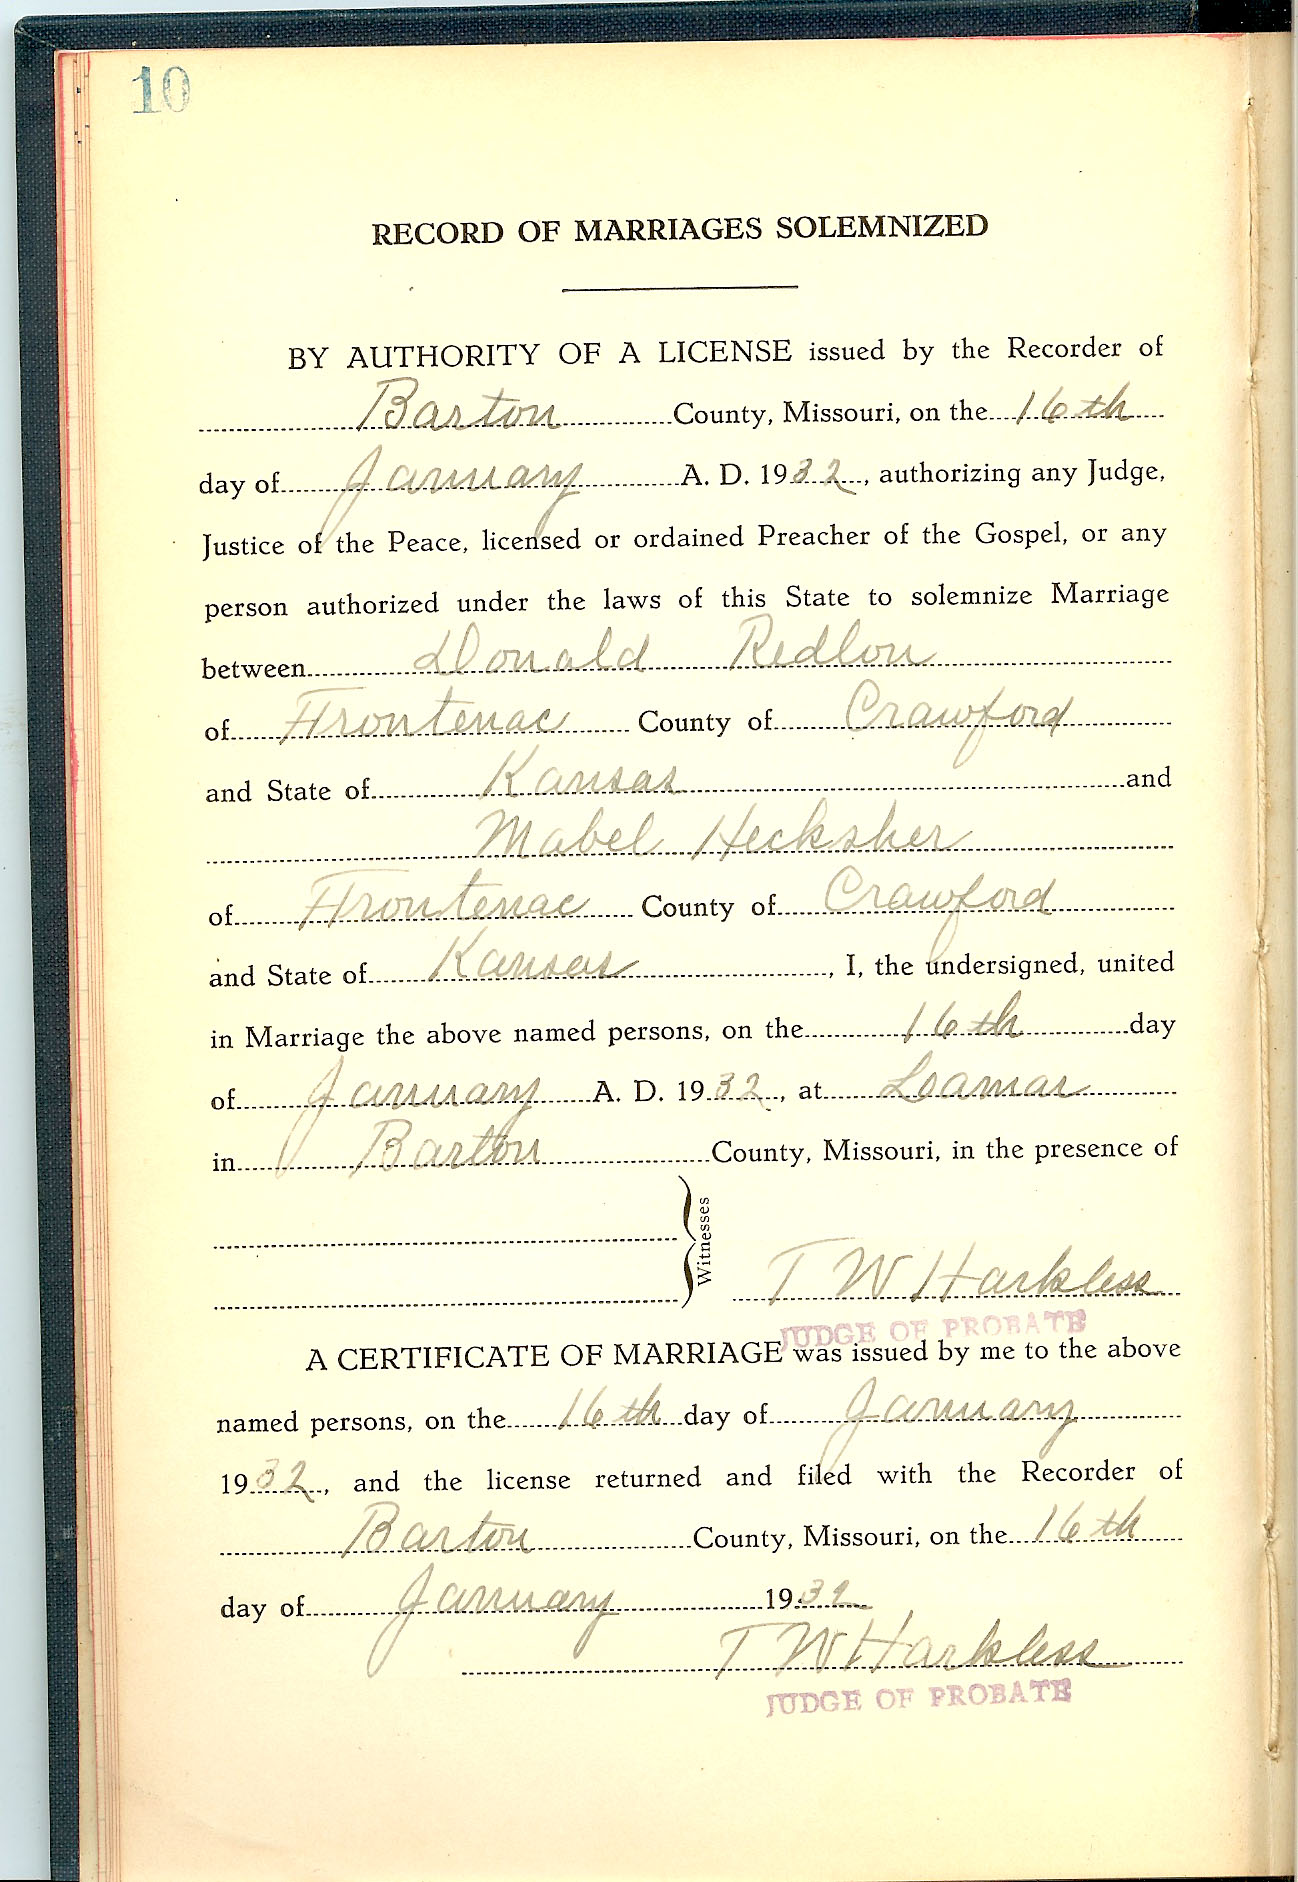 10
RECORD OF MARRIAGES SOLEMNIZED
BY AUTHORITY OF A LICENSE issued by the Recorder of
Barton County, Missouri, on the 16th
day of January A. D. 1932, authorizing any Judge,
Justice of the Peace, licensed or ordained Preacher of the Gospel, or any
person authorized under the laws of this State to solemnize Marriage
between Donald Redlon
of Frontenac County of Crawford
and State of Kansas and
Mabel Hecksher
of Frontenac County of Crawford
and State of Kansas, I, the undersigned, united
in Marriage the above named persons, on the 16th day
of January A. D. 1932, at Lamar
in Barton County, Missouri, in the presence of
Witnesses
T W Harkless
JUDGE OF PROBATE
A CERTIFICATE OF MARRIAGE was issued by me to the above
named persons, on the 16th day of January
1932, and the license returned and filed with the Recorder of
Barton County, Missouri, on the 16th
day of January 1932
T W Harkless
JUDGE OF PROBATE